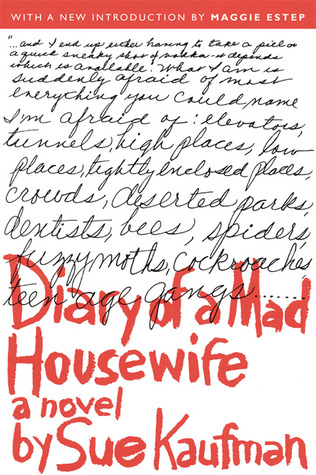 WITH A NEW INTRODUCTION BY MAGGIE ESTEP
"...and I end up either having to take a pill or
a quick sneaky shot of vodka—it depends
which is available. What I am is
suddenly afraid of most
everything you could name
I'm afraid of: elevators,
tunnels, high places, low
places, tightly enclosed places,
crowds, deserted parks,
dentists, bees, spiders,
fuzzy moths, cockroaches,
teen age gangs.......
Diary of a Mad
Housewife
a novel
by Sue Kaufman